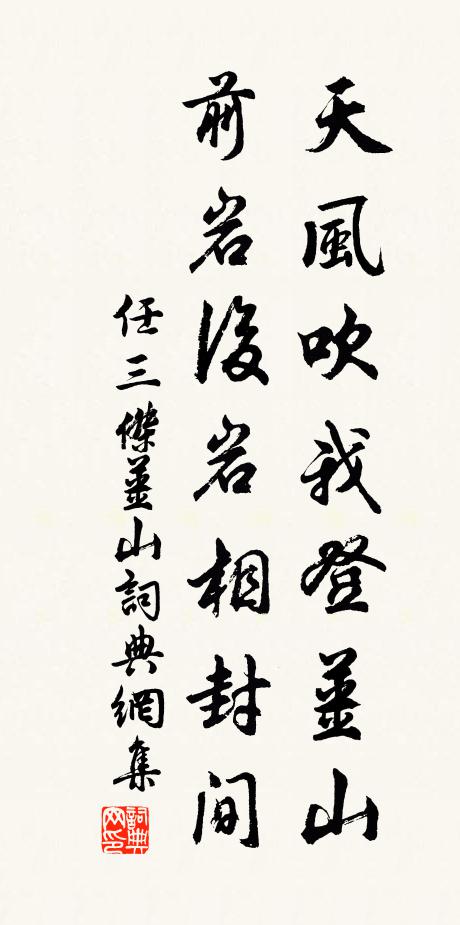 天風吹我登薑山
前岩後岩相封間
任三傑薑山詞典網集
詞典網印